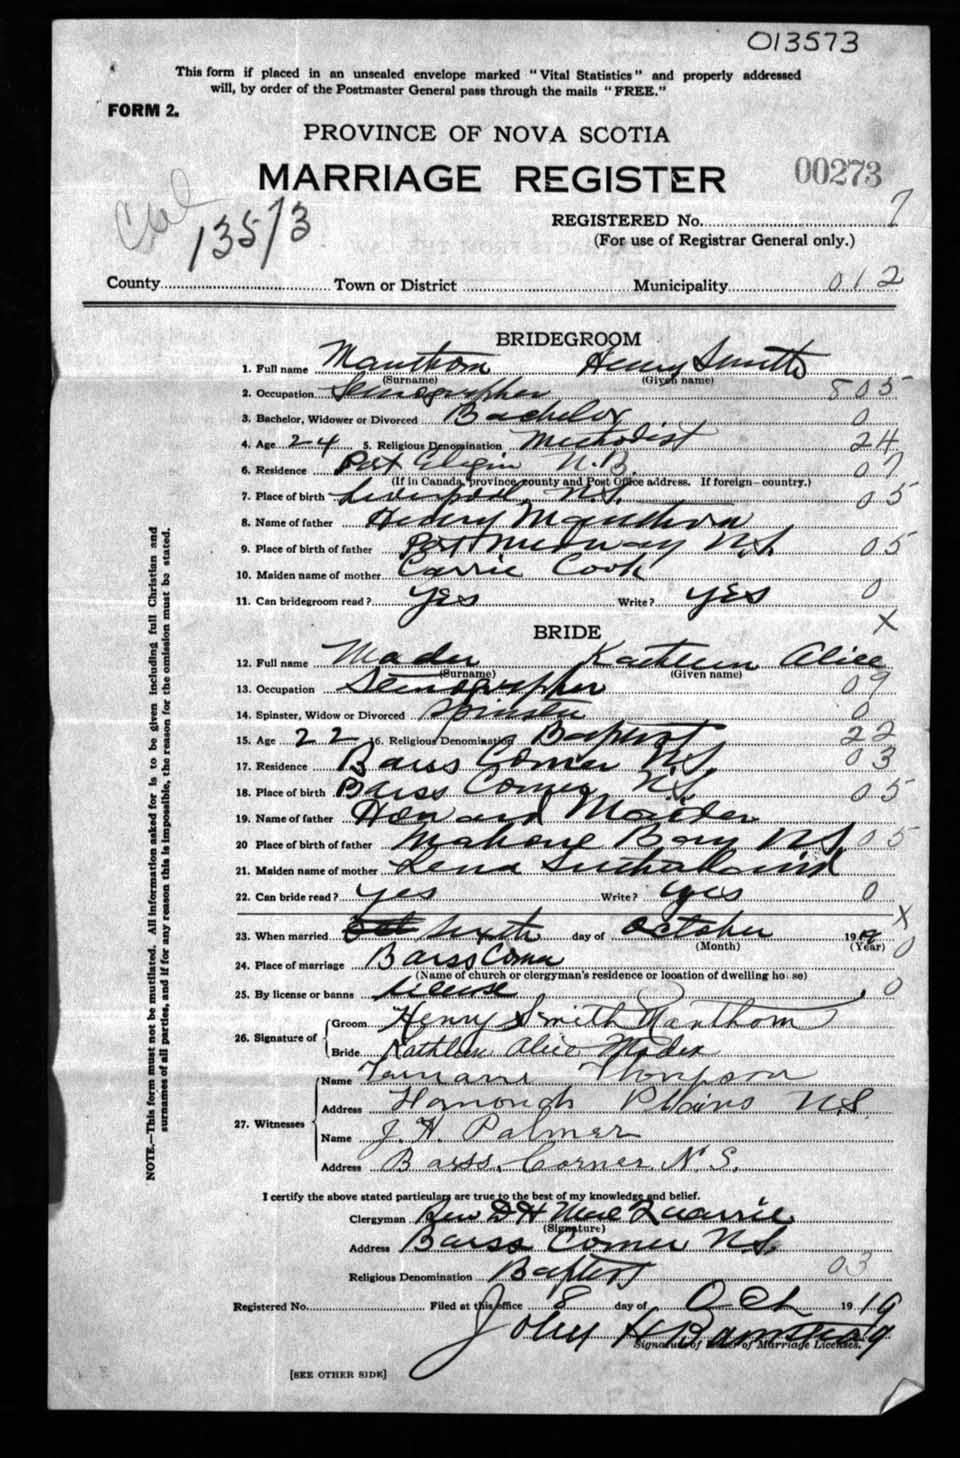 013573
This form if placed in an unsealed envelope marked "Vital Statistics" and properly addressed
will, by order of the Postmaster General pass through the mails "FREE."
FORM 2.
PROVINCE OF NOVA SCOTIA
MARRIAGE REGISTER 00273
13573
REGISTERED No. 7
(For use of Registrar General only.)
County Town or District Municipality 012
BRIDEGROOM
1. Full name Manthorn Henry Smith
(Surname) (Given name)
2. Occupation Stenographer 805
3. Bachelor, Widower or Divorced Bachelor 0
4. Age 24 5. Religious Denomination Methodist 24
6. Residence Port Elgin N.B. 07
(If in Canada, province, county and Post Office address. If foreign—country.)
7. Place of birth Liverpool, N.S. 05
8. Name of father Henry Manthorn
9. Place of birth of father Port Medway N.S. 05
10. Maiden name of mother Carrie Cook
11. Can bridegroom read? Yes Write? Yes 0
X
BRIDE
12. Full name Mader Kathleen Alice
(Surname) (Given name)
13. Occupation Stenographer 09
14. Spinster, Widow or Divorced Spinster 0
15. Age 22 16. Religious Denomination Baptist 22
17. Residence Barss Corner N.S. 03
18. Place of birth Barss Corner N.S. 05
19. Name of father Howard Mader
20 Place of birth of father Mahone Bay N.S. 05
21. Maiden name of mother Lena
22. Can bride read? yes Write? yes 0
X
23. When married Sixth day of October 1919
(Month) (Year) 0
24. Place of marriage Barss Corner
(Name of church or clergyman's residence or location of dwelling house)
25. By license or banns License 0
26. Signature of Groom Henry Smith Manthorn
Bride Kathleen Alice Mader
27. Witnesses Name Thompson
Address Plains N.S.
Name J. H. Palmer
Address Barss Corner N.S.
I certify the above stated particulars are true to the best of my knowledge and belief.
Clergyman Rev D H MacQuarrie
(Signature)
Address Barss Corner N.S.
Religious Denomination Baptist 03
Registered No. Filed at this office 8 day of Oct 1919
John H
Signature of Issuer of Marriage Licenses.
[SEE OTHER SIDE]
NOTE.—This form must not be mutilated. All information asked for is to be given including full Christian and
surnames of all parties, and if for any reason this is impossible, the reason for the omission must be stated.